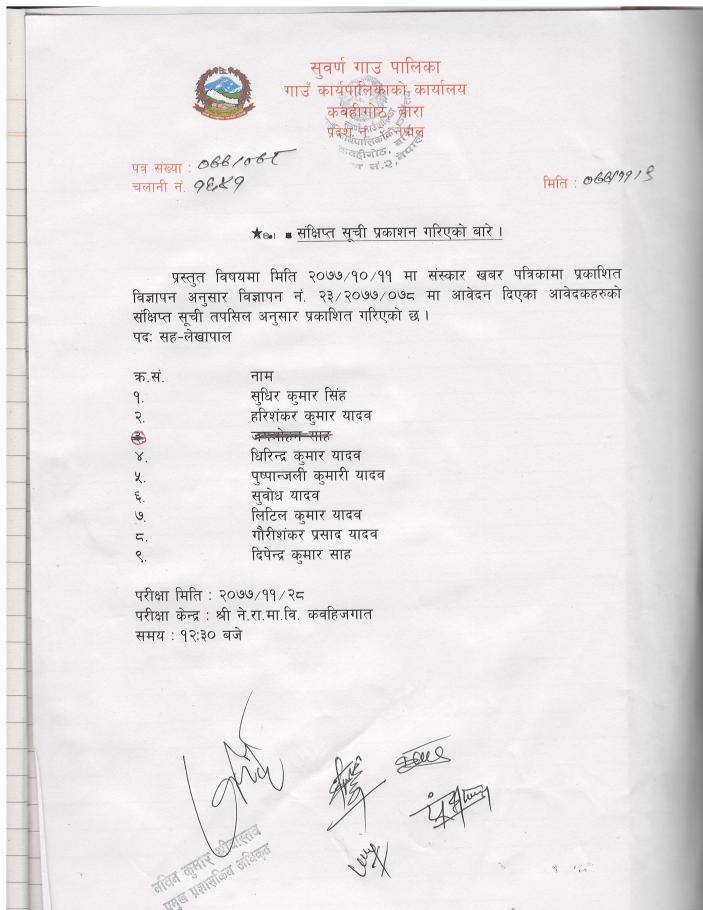 सुवर्ण गाउ पालिका
गाउँ कार्यपालिकाको कार्यालय
कवहीगोठ, बारा
प्रदेश नं. २ नेपाल
पत्र संख्या : ०७७/०७८
चलानी नं. १६४१
मिति : ०७७/११/९
संक्षिप्त सूची प्रकाशन गरिएको बारे ।
प्रस्तुत विषयमा मिति २०७७/१०/११ मा संस्कार खबर पत्रिकामा प्रकाशित
विज्ञापन अनुसार विज्ञापन नं. २३/२०७७/०७८ मा आवेदन दिएका आवेदकहरुको
संक्षिप्त सूची तपसिल अनुसार प्रकाशित गरिएको छ ।
पदः सह-लेखापाल
क्र.सं. नाम
१. सुधिर कुमार सिंह
२. हरिशंकर कुमार यादव
३. साह
४. धिरिन्द्र कुमार यादव
५. पुष्पान्जली कुमारी यादव
६. सुवोध यादव
७. लिटिल कुमार यादव
८. गौरीशंकर प्रसाद यादव
९. दिपेन्द्र कुमार साह
परीक्षा मिति : २०७७/११/२८
परीक्षा केन्द्र : श्री ने.रा.मा.वि. कवहिजगात
समय : १२:३० बजे
नविन कुमार श्रीवास्तव
प्रमुख प्रशासकिय अधिकृत